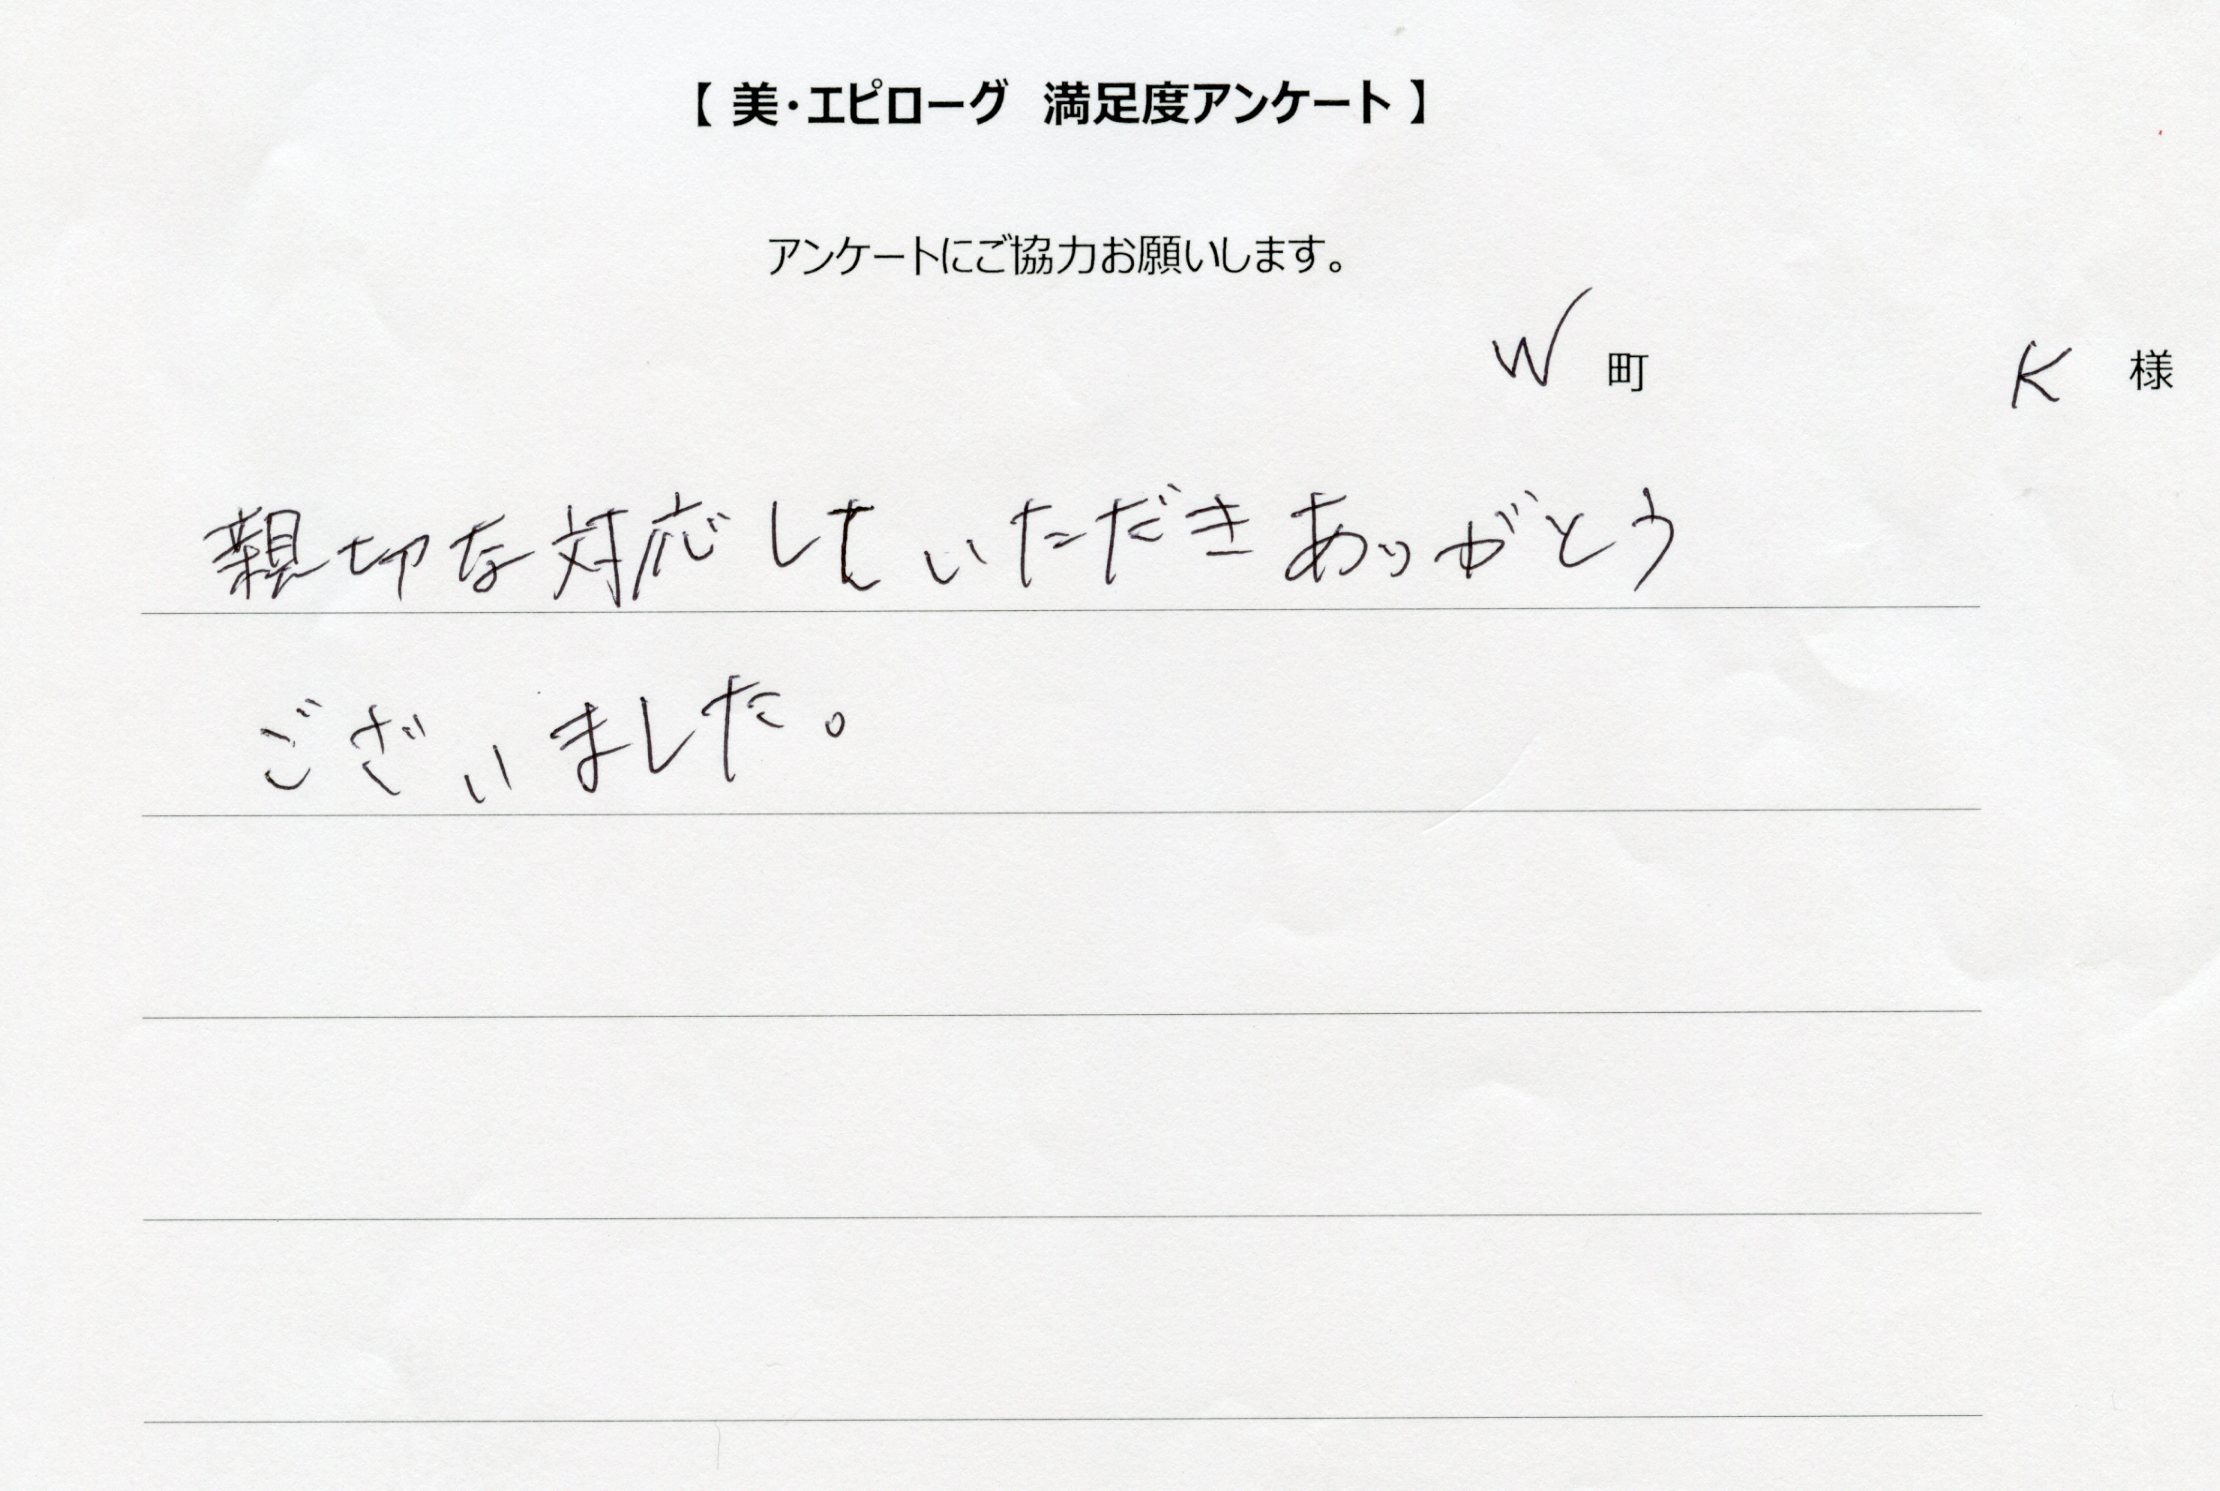 【 美・エピローグ 満足度アンケート 】
アンケートにご協力お願いします。
W 町 K 様
親切な対応していただきありがとう
ございました。